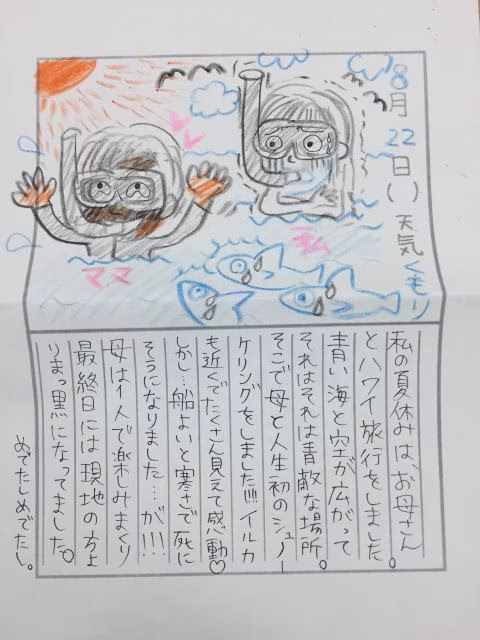 8月22日( )天気くもり
私
ママ
私の夏休みは、お母さん
とハワイ旅行をしました。
青い海と空が広がって
それはそれは素敵な場所。
そこで母と人生初のシュノー
ケリングをしました!!!!イルカ
も近くでたくさん見えて感動♡
しかし…船よいと寒さで死に
そうになりました…が!!!
母は1人で楽しみまくり
最終日には現地の方よ
りまっ黒になってました。
めでたしめでたし。